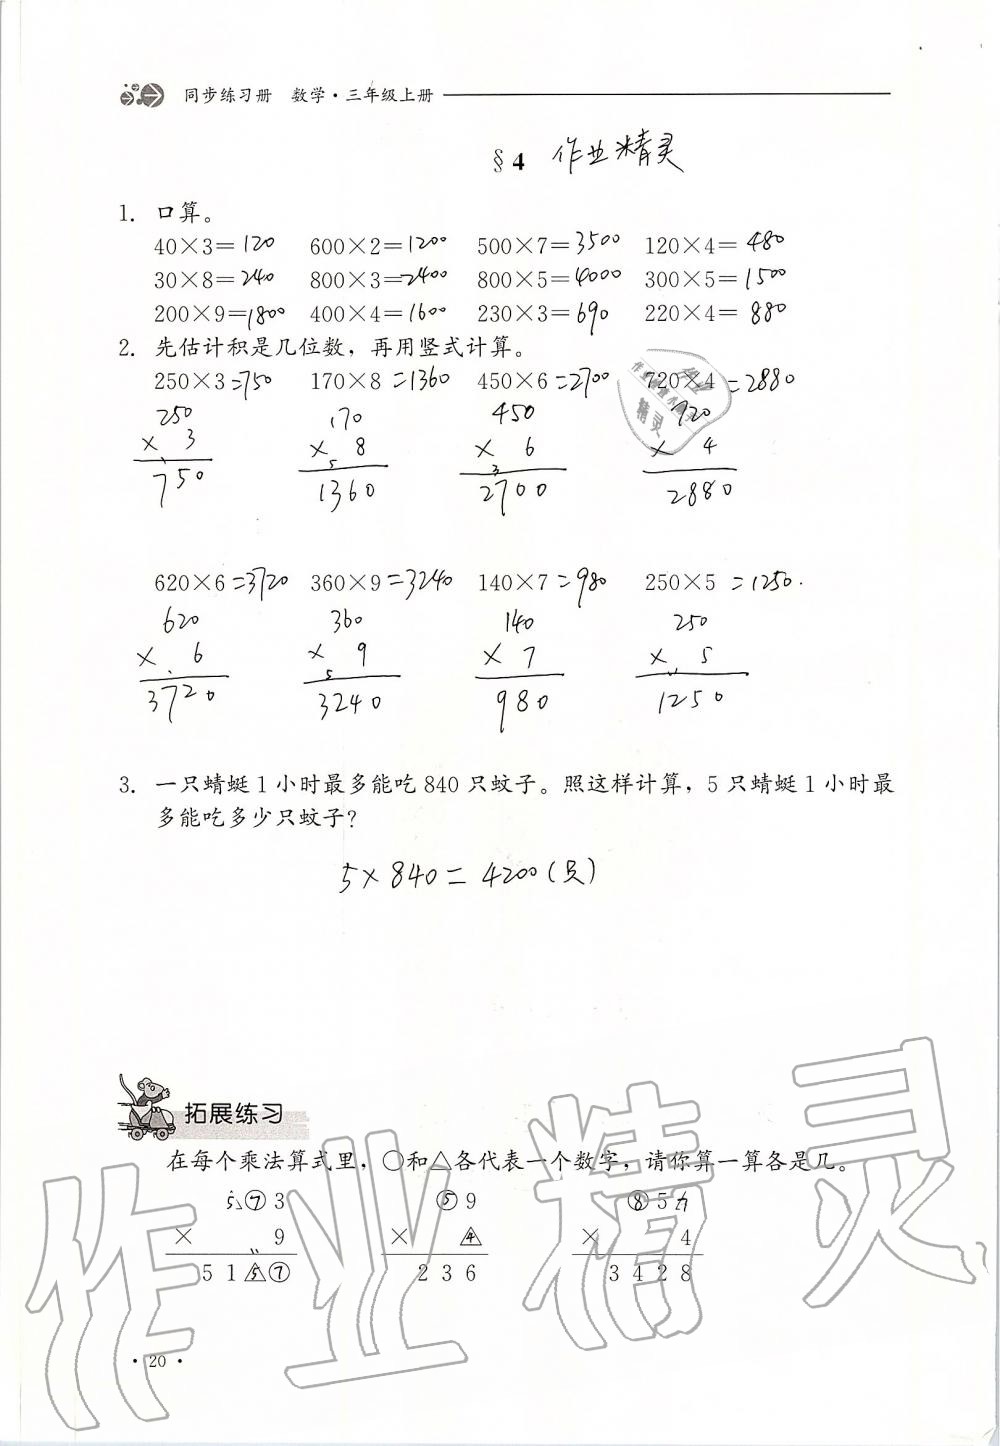 同步练习册 数学·三年级上册
§4 作业精灵
1. 口算。
40×3=120 600×2=1200 500×7=3500 120×4=480
30×8=240 800×3=2400 800×5=4000 300×5=1500
200×9=1800 400×4=1600 230×3=690 220×4=880
2. 先估计积是几位数，再用竖式计算。
250×3=750 170×8=1360 450×6=2700 720×4=2880
250 170 450 720
× 3 × 8 × 6 × 4
750 1360 2700 2880
620×6=3720 360×9=3240 140×7=980 250×5=1250.
620 360 140 250
× 6 × 9 × 7 × 5
3720 3240 980 1250
3. 一只蜻蜓1小时最多能吃840只蚊子。照这样计算，5只蜻蜓1小时最
多能吃多少只蚊子？
5×840=4200(只)
拓展练习
在每个乘法算式里，○和△各代表一个数字，请你算一算各是几。
5⑦3 ⑤9 ⑧57
× 9 × 4 × 4
515⑦ 236 3428
·20·
作业精灵